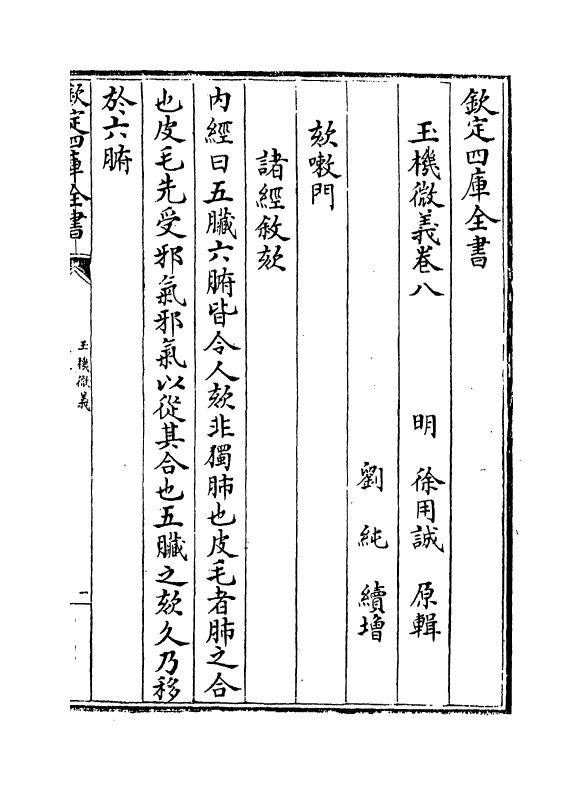 欽定四庫全書
玉機微義卷八
明 徐用誠 原輯
劉純 續增
欬嗽門
諸經敘欬
内經曰五臟六腑皆令人欬非獨肺也皮毛者肺之合
也皮毛先受邪氣邪氣以從其合也五臟之欬久乃移
於六腑
欽定四庫全書
玉機微義
一